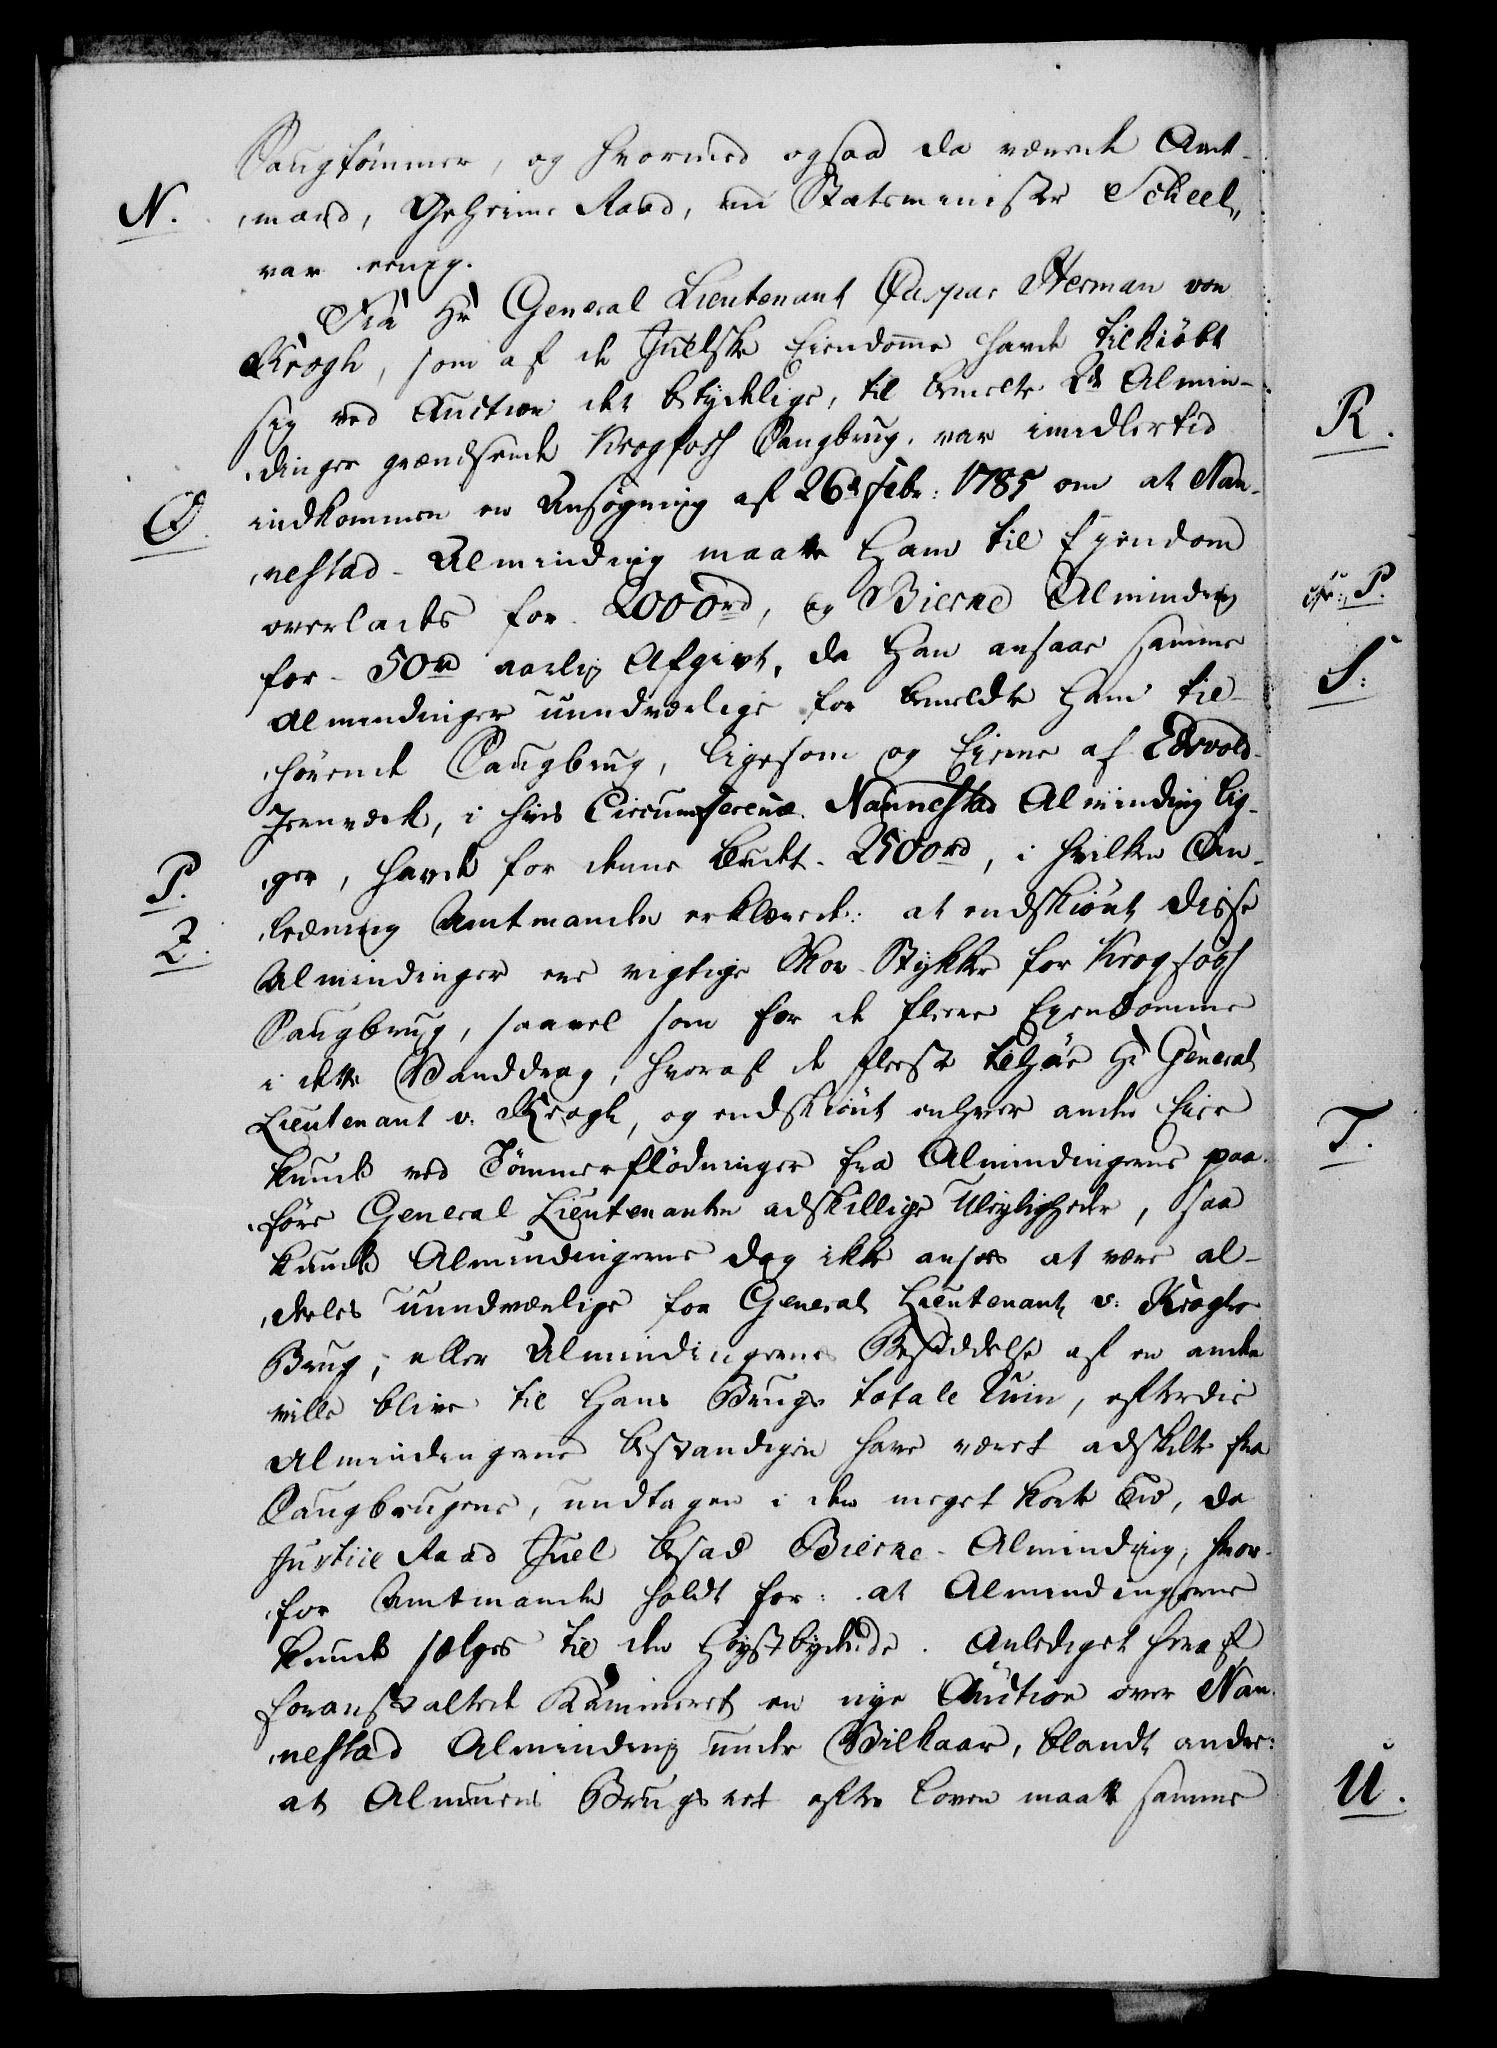 Saugtømmer, og hvormed ogsaa da værende Amt-
N.
mand, Geheime Raad, nu Statsminister Scheel,
var eenig.
Fra Hr General Lieutenant Caspar Herman von
Krogh, som af de Juelske Eiendomme havde tilkiøbt
sig ved Auction det betydelige, til bemelte 2de Almin-
dinger grændsende Krogfoss Saugbrug, var imidlertid
O.
indkommen en Ansøgning af 26de Febr: 1785 om at Nan-
nestad-Alminding maatte ham til Eyendom
overlades for 2000rd, og Bierke Alminding
for 50rd aarlig Afgivt, da han ansaae samme
Almindinger uundværlige for bemeldte ham til-
hørende Saugbrug, ligesom og Eierne af Edsvold-
Jernværk, i hvis Circumference Nannestad Alminding lig-
P.
ger, havde for denne budet 2500rd, i hvilken An-
Z.
ledning Amtmanden erklærede: at endskiønt disse
Almindinger ere vigtige Skov-Stykker for Krogfoss
Saugbrug, saavel som for de flere Eyendomme
i dette Vanddrag, hvoraf de fleste tilhøre Hr General
Lieutenant v. Krogh, og endskiønt enhver anden Eier
kunde ved Tømmerflødninger fra Almindingerne paa-
føre General Lieutenanten adskillige Uleyligheder, saa
kunde Almindingerne dog ikke ansees at være al-
deles uundværlige for General Lieutenant v: Kroghs
Brug, eller Almindingernes Besiddelse af en anden
ville blive til hans Brugs totale Ruin, efterdie
Almindingerne bestandigen have været adskilte fra
Saugbrugene, undtagen i den meget korte Tid, da
Justice Raad Juel besad Bierke-Alminding, hvor-
for Amtmanden holdt for: at Almindingerne
kunde sælges til den Høystbydende. Anlediget heraf
foranstaltede Kammeret en nye Auction over Nan-
nestad Alminding under Vilkaar, blandt andre:
at Almuens Brugsret efter Loven maatte samme
R.
cfr: P.
S:
T.
U.